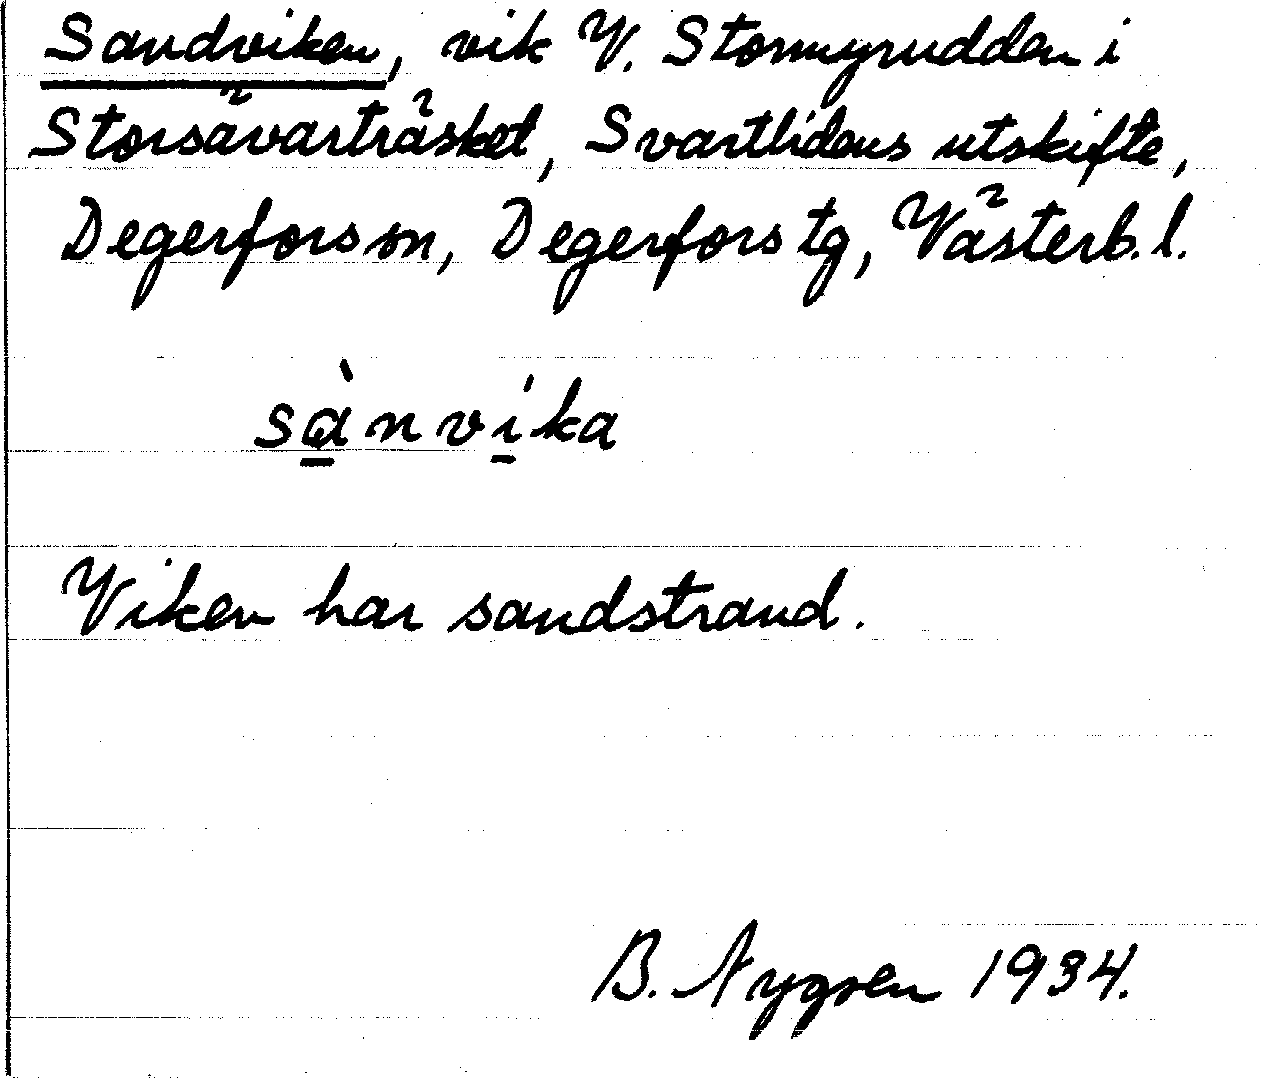 Sandviken, vik V. Stormyrudden i
Storsävarträsket, Svartlidens utskifte,
Degerfors sn, Degerfors tg, Västerb. l.
sànvíka
Viken har sandstrand.
B. Nygren 1934.